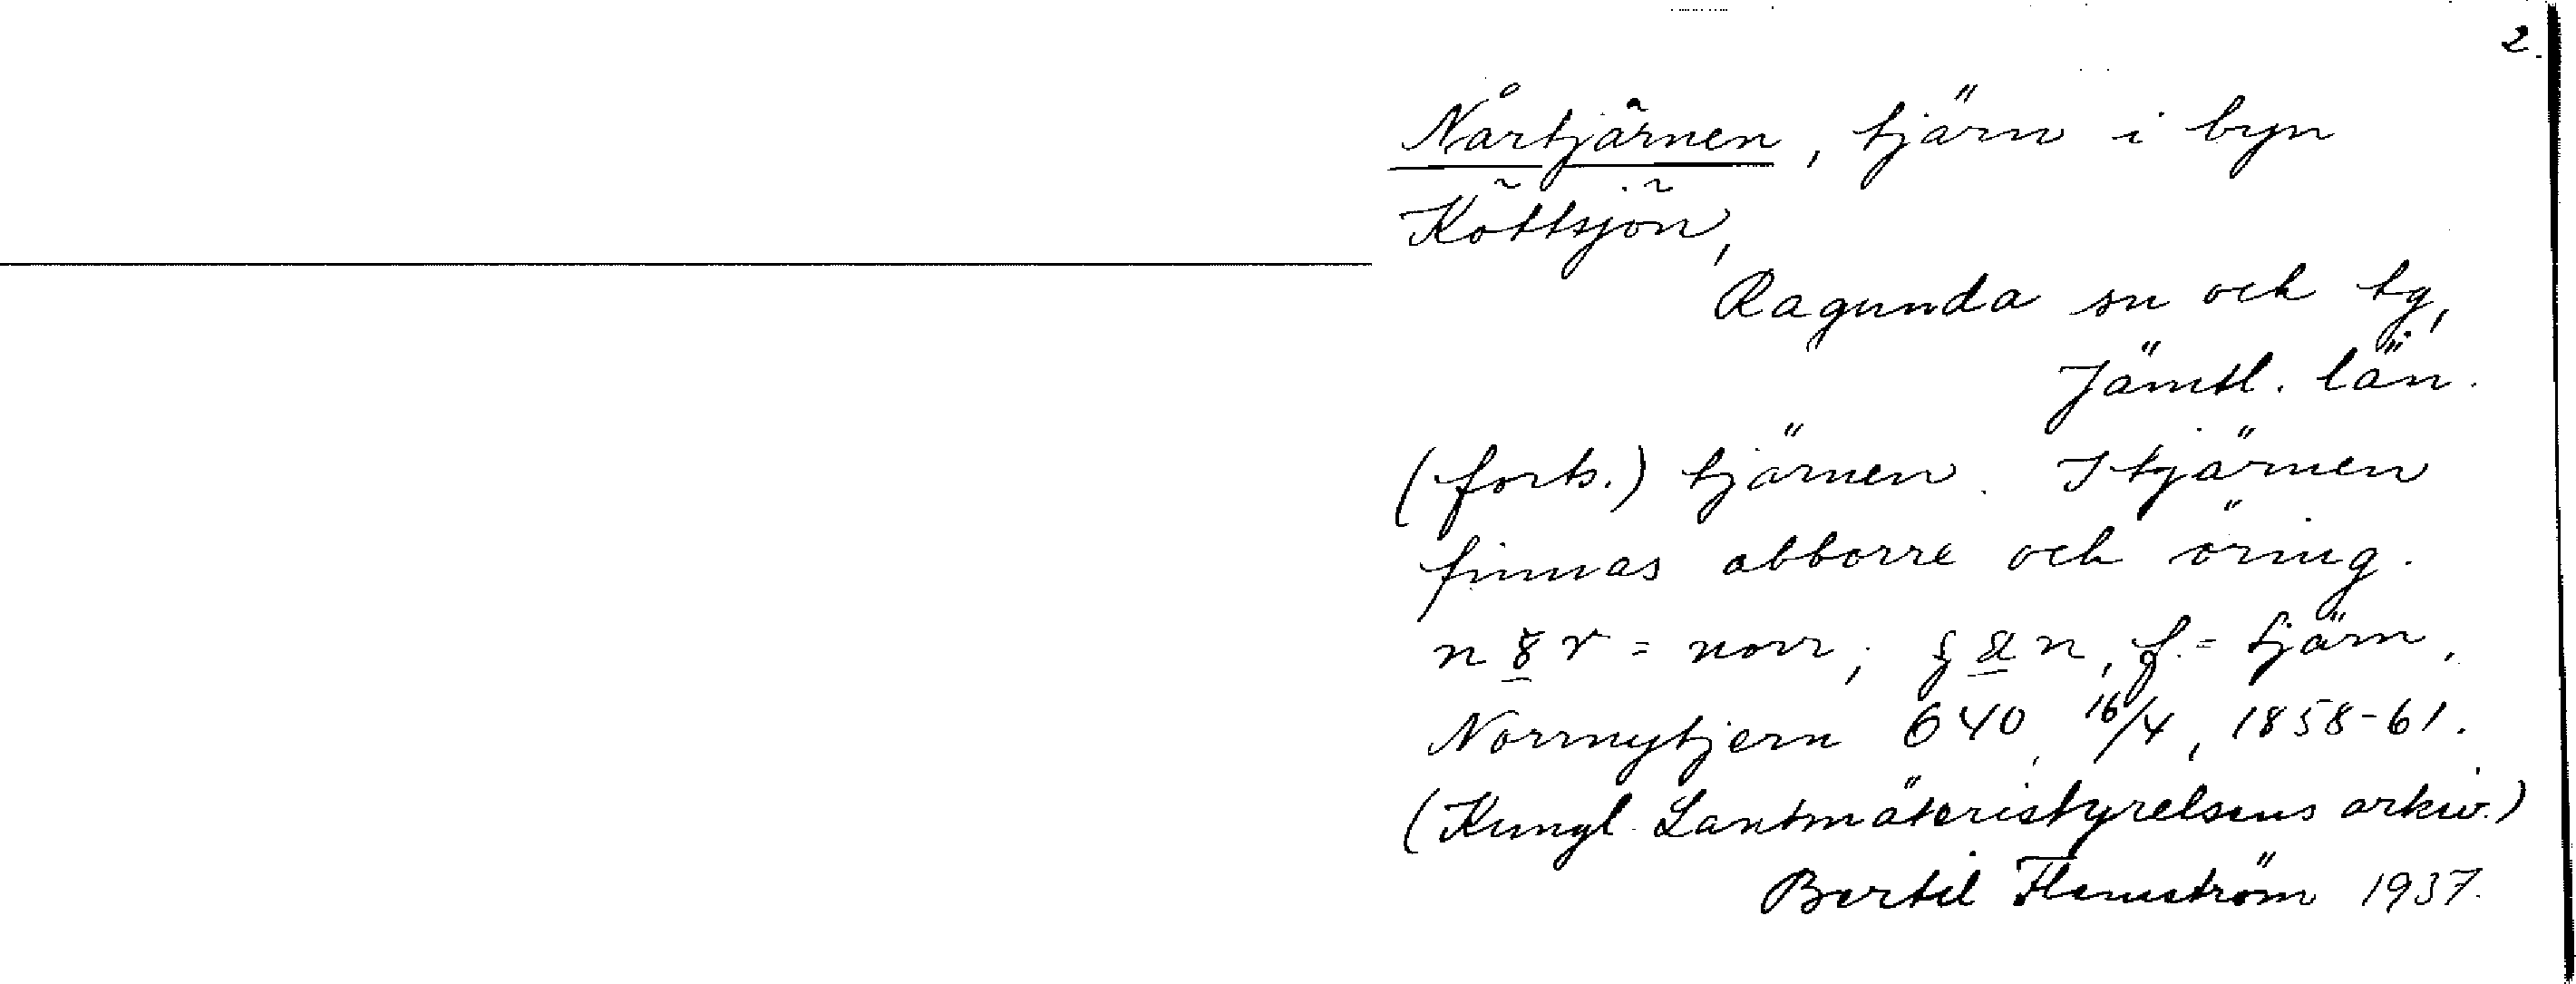 2.
Nårtjärnen, tjärn i byn
Köttsjön,
Ragunda sn och tg,
Jämtl. län.
(forts.) tjärnen. I tjärnen
finnas abborre och öring.
r = norr; n, f. = tjärn.
Norrnytjern 640, 16/4, 1858-61.
(Kungl. Lantmäteristyrelsens arkiv.)
Bertil Flemström 1937.